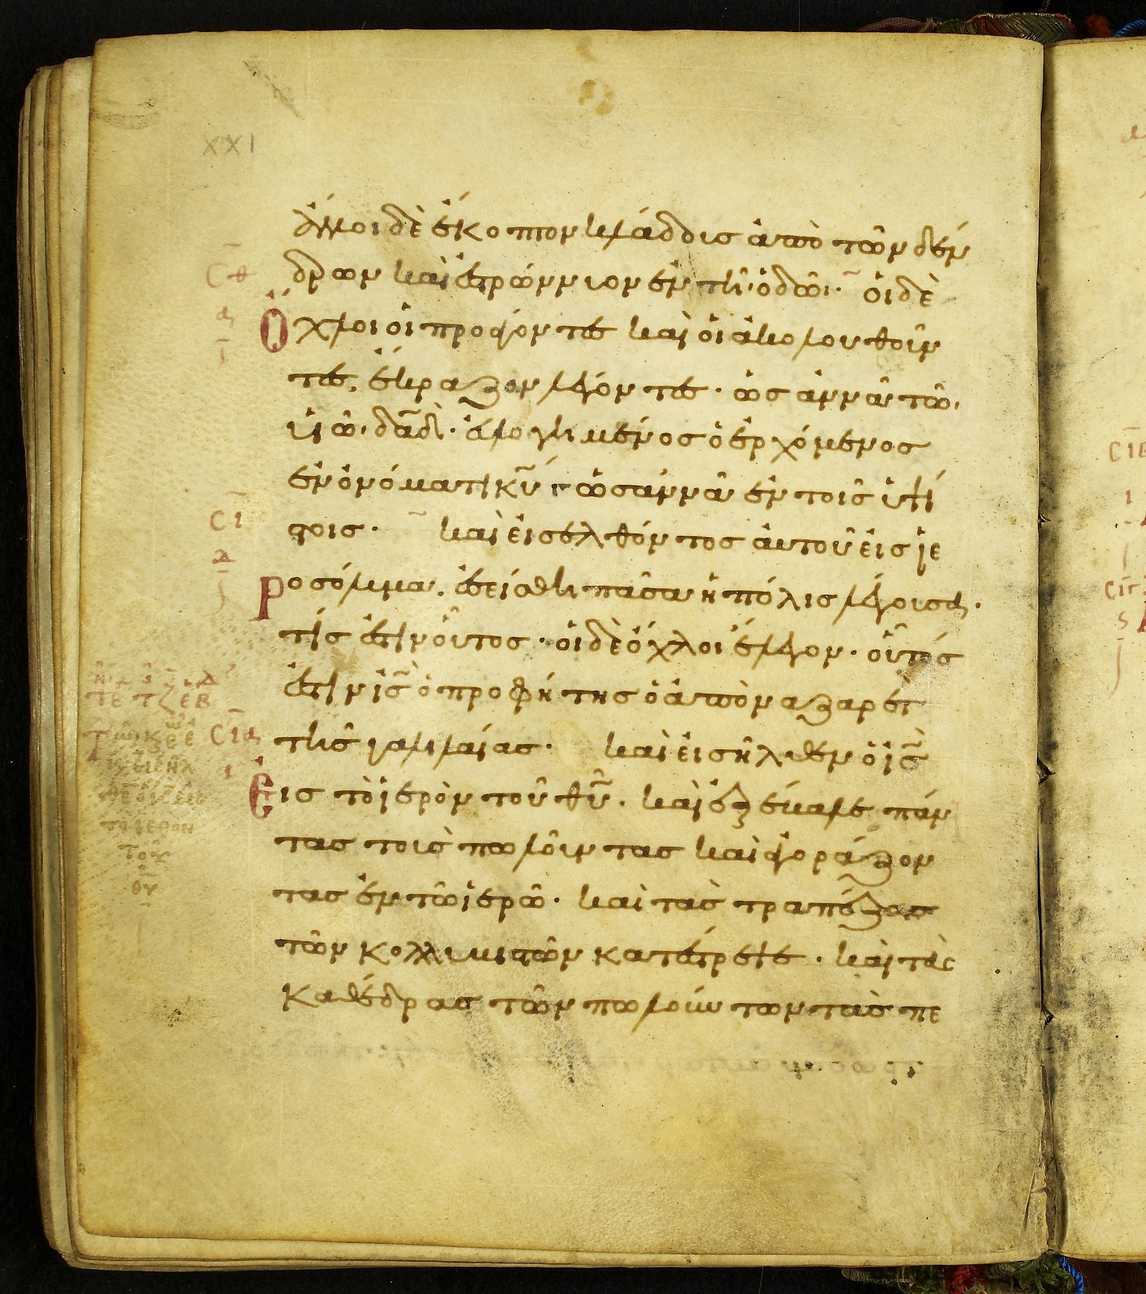 XXI
ἄλλοι δὲ ἔκοπτον κλάδους ἀπὸ τῶν δέν
δρων καὶ ἐστρώννυον ἐν τῆ ὁδῶ· οἱ δὲ
ὄχλοι οἱ προάγοντες καὶ οἱ ἀκολουθοῦν
τες, ἔκραζον λέγοντες· ὡς ἀννὰ τῶ,
υἱῶ, δα̅δ· εὐλογημένος ὁ ἐρχόμενος
ἐν ὀνόματι κ̅υ ὡσαννὰ ἐν τοῖς ὑψί
στοις· καὶ εἰσελθόντος αὐτοῦ εἰς ἱε
ροσόλυμα, ἐσείσθη πᾶσα ἡ πόλις λέγουσα,
τίς ἐστιν οὗτος· οἱ δὲ ὄχλοι ἔλεγον· οὗτός
ἐστιν ι̅ς ὁ προφήτης ὁ ἀπὸ ναζαρὲτ
τῆς γαλιλαίας· καὶ εἰσῆλθεν ὁ ι̅ς
εἰς τὸ ἱερὸν τοῦ θ̅υ. καὶ ἐξέβαλε πάν
τας τοὺς πωλοῦντας καὶ ἀγοράζον
τας ἐν τῶ ἱερῶ· καὶ τὰς τραπέζας
τῶν κολλυβιστῶν κατέστρεψε· καὶ τὰς
καθέδρας τῶν πωλούντων τὰς πε